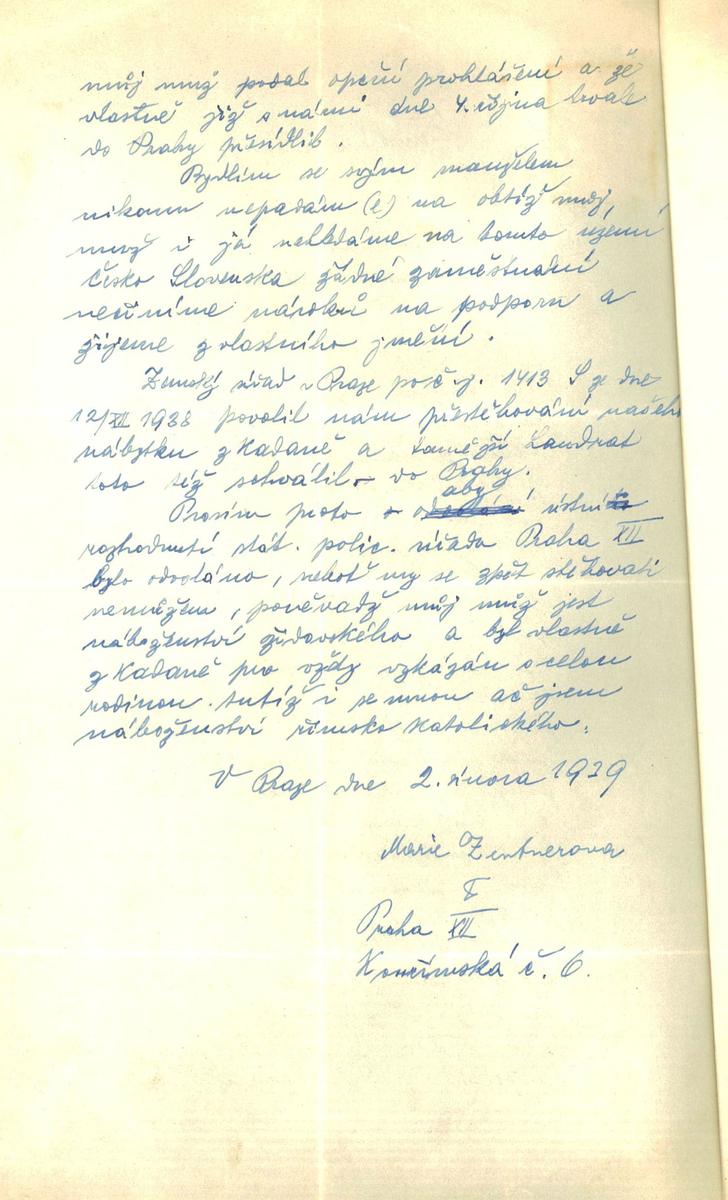 můj muž podal opční prohlášení a že
vlastně již s námi dne 4. října trvale
do Prahy přesídlil.
Bydlím se svým manželem
nikomu nepadám (e) na obtíž můj
muž i já nehledáme na tomto území
Česko Slovenska žádné zaměstnání
nečiníme nároků na podporu a
žijeme z vlastního jmění.
Zemský úřad v Praze pod č. j. 1413 S ze dne
12/XII 1938 povolil nám přestěhování našeho
nábytku z Kadaně a tamější Landrat
toto též schválil do Prahy.
Prosím proto aby ústní
rozhodnutí stát. polic. úřadu Praha XII
bylo odvoláno, neboť my se zpět stěhovati
nemůžem, poněvadž můj muž jest
náboženství židovského a byl vlastně
z Kadaně pro vždy vykázán s celou
rodinou tutíž i se mnou ač jsem
náboženství římsko katolického.
V Praze dne 2. února 1939
Marie Zentnerova
Praha XII
Kouřimská č. 6.